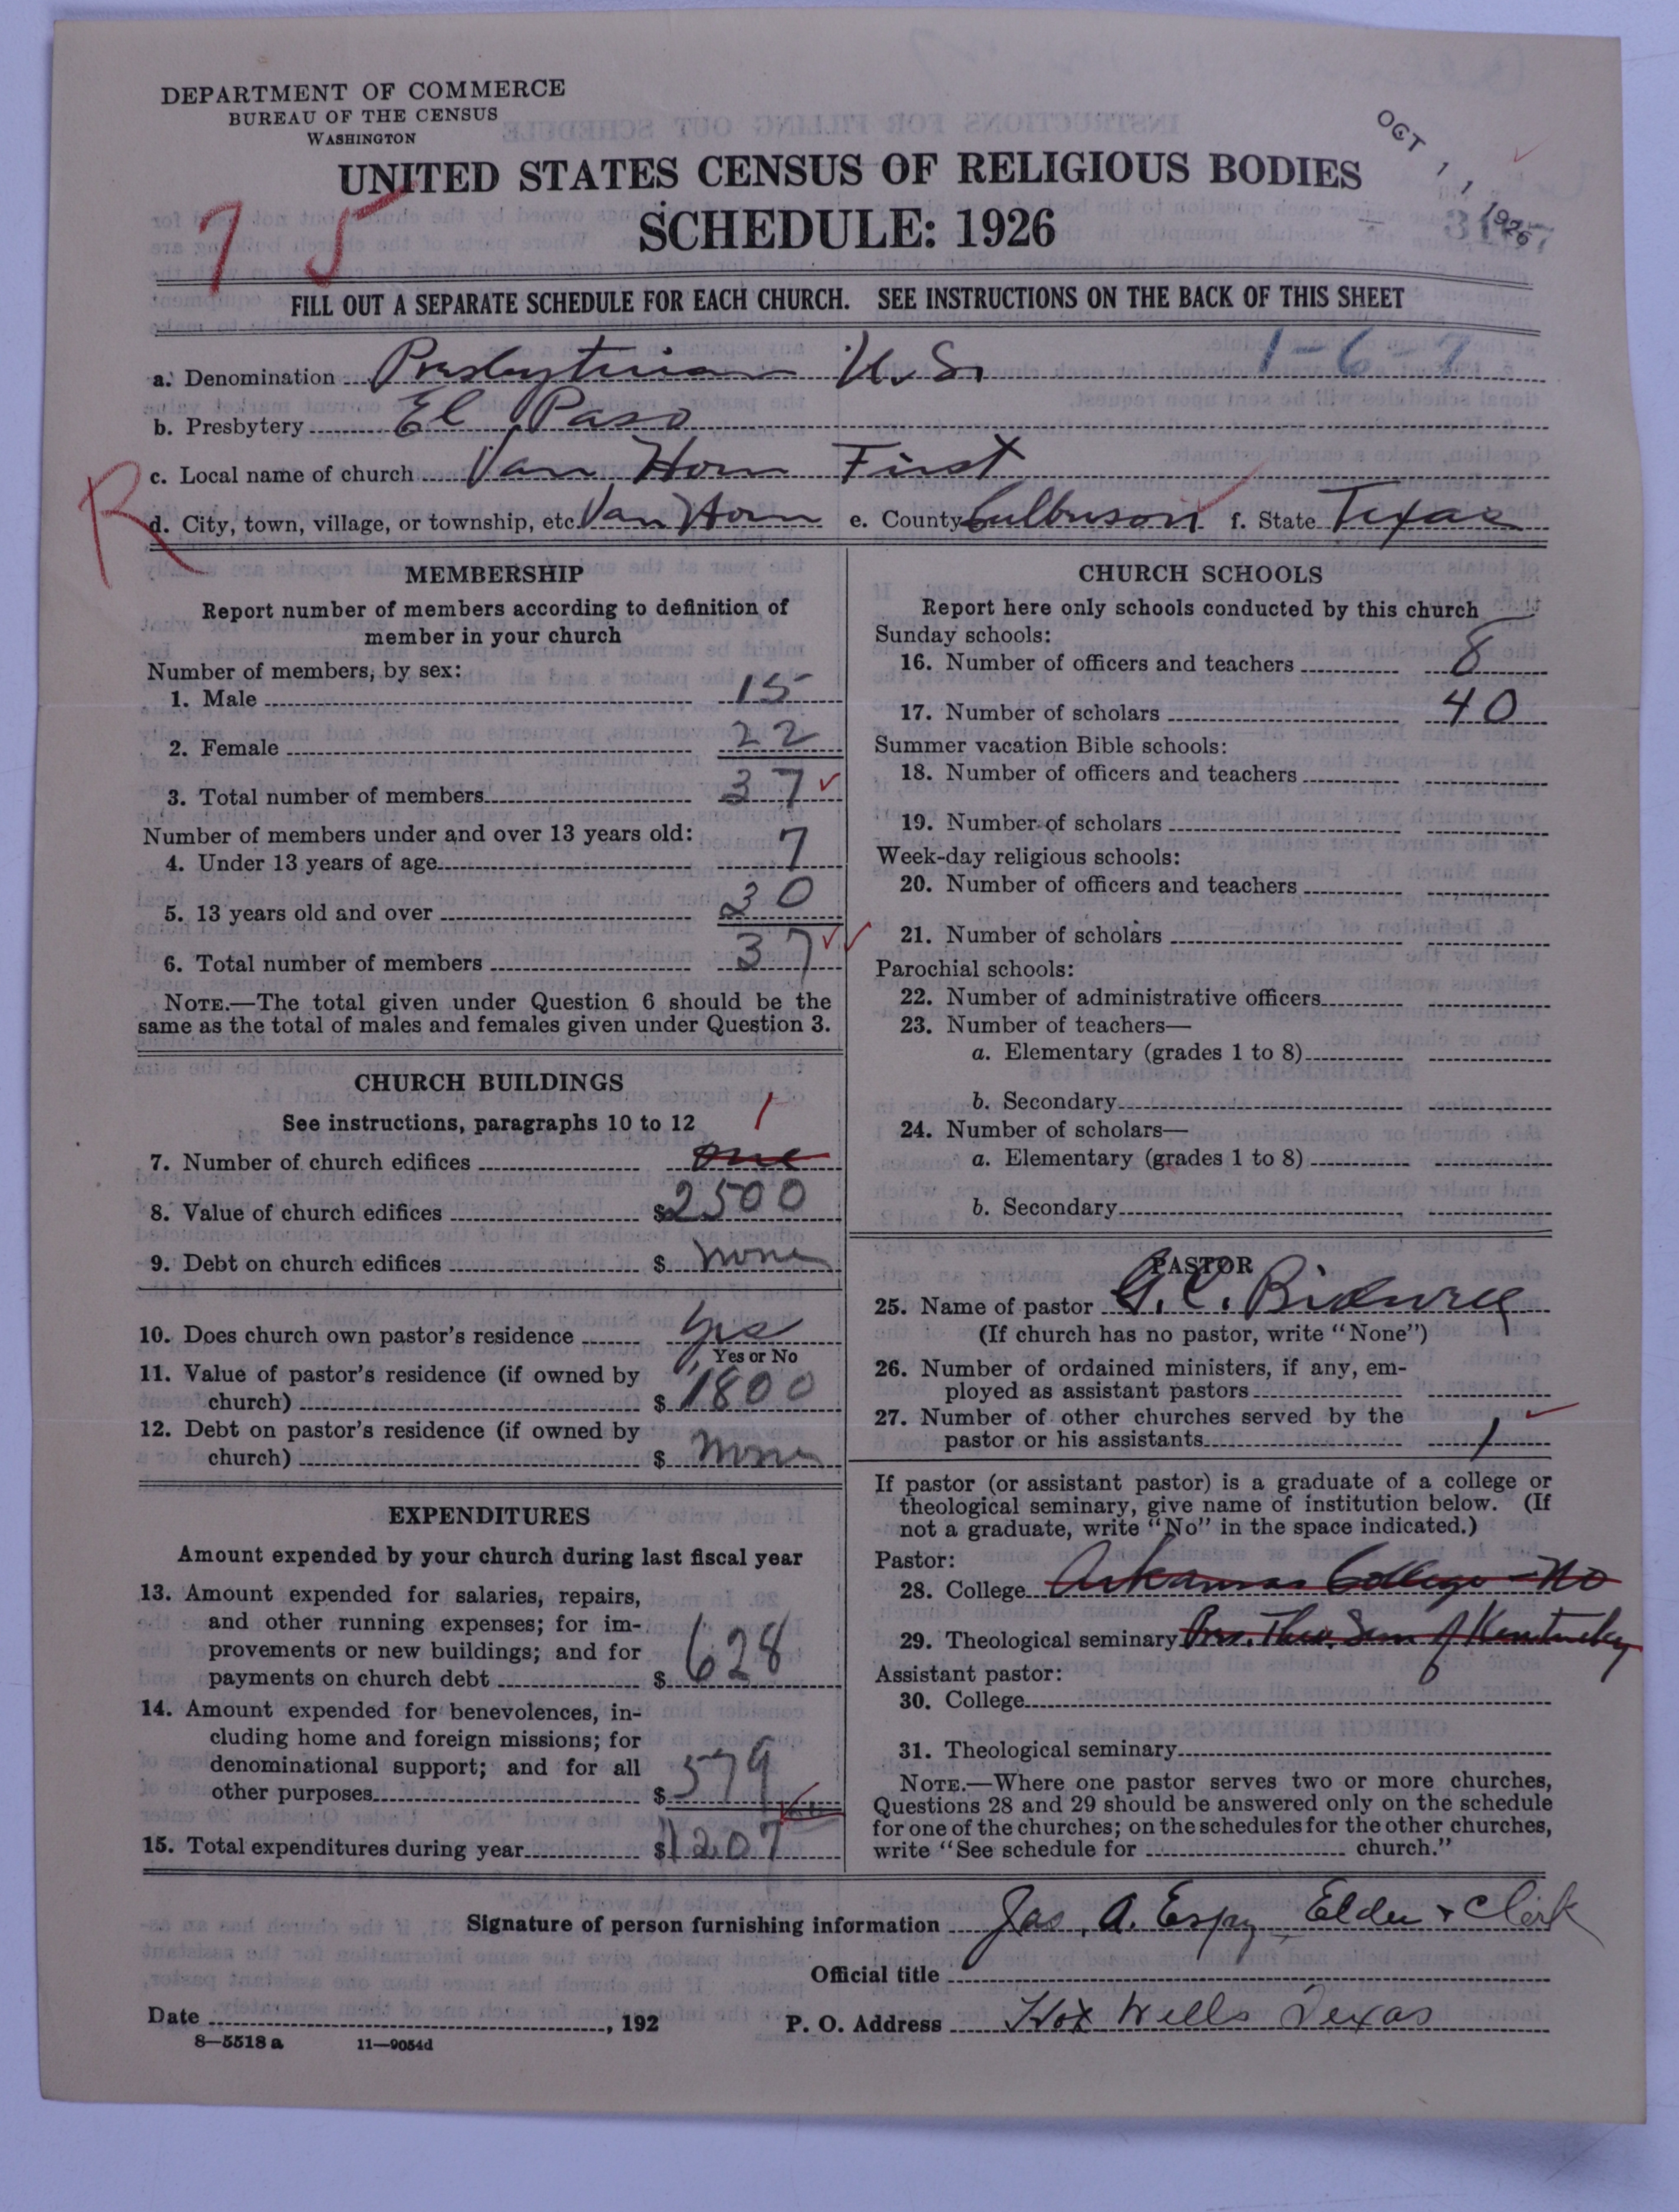 DEPARTMENT OF COMMERCE
BUREAU OF THE CENSUS
WASHINGTON
UNITED STATES CENSUS OF RELIGIOUS BODIES
SCHEDULE: 1926
OCT 11 1926
7 5
FILL OUT A SEPARATE SCHEDULE FOR EACH CHURCH. SEE INSTRUCTIONS ON THE BACK OF THIS SHEET
1-6-7
a. Denomination Presbyterian U.S.
b. Presbytery El Paso
c. Local name of church Van Horn First
R
d. City, town, village, or township, etc. Van Horn e. County Culberson f. State Texas
MEMBERSHIP
Report number of members according to definition of
member in your church
Number of members, by sex:
1. Male 15
2. Female 22
3. Total number of members 37
Number of members under and over 13 years old:
4. Under 13 years of age 7
5. 13 years old and over 30
6. Total number of members 37
NOTE.—The total given under Question 6 should be the
same as the total of males and females given under Question 3.
CHURCH BUILDINGS
See instructions, paragraphs 10 to 12
1
7. Number of church edifices one
8. Value of church edifices $2500
9. Debt on church edifices $ none
10. Does church own pastor's residence yes
Yes or No
11. Value of pastor's residence (if owned by
church) $ 1800
12. Debt on pastor's residence (if owned by
church) $ none
EXPENDITURES
Amount expended by your church during last fiscal year
13. Amount expended for salaries, repairs,
and other running expenses; for im-
provements or new buildings; and for
payments on church debt $ 628
14. Amount expended for benevolences, in-
cluding home and foreign missions; for
denominational support; and for all
other purposes $ 579
15. Total expenditures during year $1207
CHURCH SCHOOLS
Report here only schools conducted by this church
Sunday schools:
16. Number of officers and teachers 8
17. Number of scholars 40
Summer vacation Bible schools:
18. Number of officers and teachers
19. Number of scholars
Week-day religious schools:
20. Number of officers and teachers
21. Number of scholars
Parochial schools:
22. Number of administrative officers
23. Number of teachers—
a. Elementary (grades 1 to 8)
b. Secondary
24. Number of scholars—
a. Elementary (grades 1 to 8)
b. Secondary
PASTOR
25. Name of pastor G. C. Bidwell
(If church has no pastor, write "None")
26. Number of ordained ministers, if any, em-
ployed as assistant pastors
27. Number of other churches served by the
pastor or his assistants 1
If pastor (or assistant pastor) is a graduate of a college or
theological seminary, give name of institution below. (If
not a graduate, write "No" in the space indicated.)
Pastor:
28. College Arkansas College - No
29. Theological seminary Pres. Theo. Sem of Kentucky
Assistant pastor:
30. College
31. Theological seminary
NOTE.—Where one pastor serves two or more churches,
Questions 28 and 29 should be answered only on the schedule
for one of the churches; on the schedules for the other churches,
write "See schedule for church."
Signature of person furnishing information Jas. A. Espy Elder & Clerk
Official title
Date , 192 P. O. Address Hot Wells Texas
8—5518 a 11—9054d